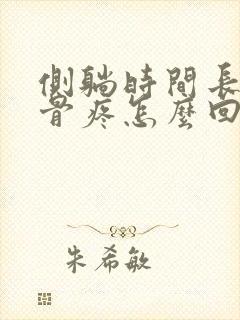 側躺時間長
骨疼怎麼回
朱希敏